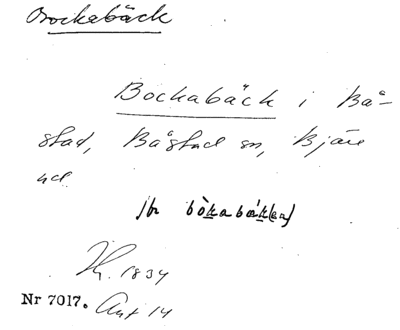 Bockabäck
Bockabäck i Bå-
stad, Båstad sn, Bjäre
hd
bòkabäk(en)
1834
Nr 7017. Ant 14